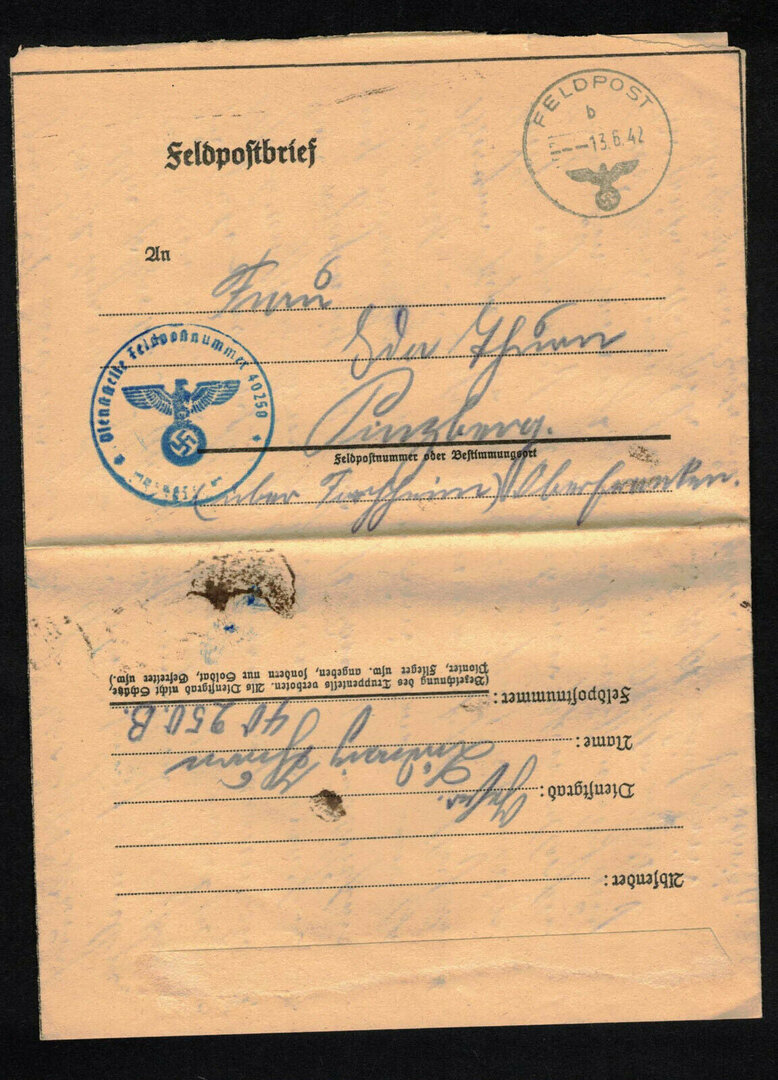 FELDPOST
b
-13.6.42
Feldpostbrief
An
Frau
Thurn
Pinzberg.
Feldpostnummer oder Bestimmungsort
(über Forchheim) Oberfranken.
Dienststelle Feldpostnummer 40250
Absender:
Dienstgrad: Gefr.
Name: Ludwig Thurn
Feldpostnummer: 40250.B.
(Bezeichnung des Truppenteils verboten. Als Dienstgrad nicht Schütze,
Pionier, Flieger usw. angeben, sondern nur Soldat, Gefreiter usw.)